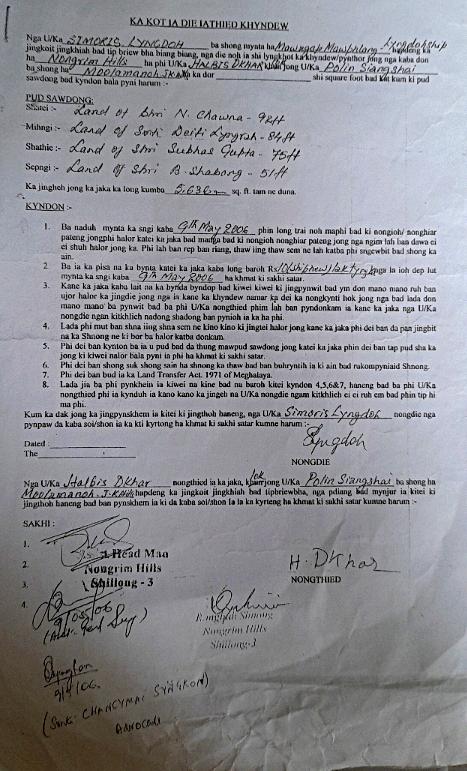 KA KOT JA DIE JATHIED KHYNDEW
Nga U/Ka SIMORIS LYNGDOH ba shong mynta ha Mawngap Mawphlang Lyngdohship hapdeng ka
jingkoit jingkhiah bad tip briew bha biang biang, nga die noh ia shi lyngkhot ka khyndew/pynthor jong nga kaba don
ha Nongrim Hills ha phi U/Ka HALBIS DKHAR jong U/Ka Polin Siangshai
ba shong ha Moolamanoh JK Hills ka dor shi square foot bad kat kum ki pud
sawdong bad kyndon bala pyni harum :-
PUD SAWDONG:
Shatei :- Land of Shri N. Chawna - 9kft
Mihngi :- Land of Smti Deiti Lyngrah - 84ft
Shathie :- Land of Shri Subhas Gupta - 75ft
Sepngi :- Land of Shri B. Shabong - 51ft
Ka jingheh jong ka jaka ka long kumbo 5,636 sq. ft. tam ne duna.
KYNDON :-
1. Ba naduh mynta ka sngi kaba 9th May 2006 phin long trai noh maphi bad ki nongioh/ nonghiar
pateng jongphi halor katei ka jaka bad manga bad ki nongioh nonghiar pateng jong nga ngim lah ban dawa ei
ei shuh halor jong ka. Phi lah ban rep ban riang, thaw iing thaw sem ne lah katba phi sngewbit bad shong ka
ain.
2. Ba ia ka pisa na ka bynta katei ka jaka kaba long baroh Rs/ nga la ioh dep lut
mynta ka sngi kaba 9th May 2006 ha khmat ki sakhi satar.
3. Kane ka jaka kaba lait na ka bynda byndod bad kiwei kiwei ki jingpynwit bad ym don mano mano ruh ban
ujor halor ka jingdie jong nga ia kane ka khyndew namar ka dei ka nongkynti hok jong nga bad lada don
mano mano ba pynwit bad ba phi U/Ka nongthied phim lah ban pyndonkam ia kane ka jaka nga U/Ka
nongdie ngan kitkhlieh nadong shadong ban pynioh ia ka ha phi.
4. Lada phi mut ban shna iing shna sem ne kino kino ki jingtei halor jong kane ka jaka phi dei ban da pan jingbit
na ka Shnong ne ki bor ba halor katba donkam.
5. Phi dei ban kynton ba ia u pud bad da thung mawpud sawdong jong katei ka jaka phin dei ban tap pud sha ka
jong ki kiwei nalor bala pyni in phi ha khmat ki sakhi satar.
6. Phi dei ban shong suk shong sain ha shnong ka thaw bad ban buhryntih ia ki ain bad rukompyniaid Shnong.
7. Phi dei ban bud ia ka Land Transfer Act. 1971 of Meghalaya.
8. Lada jia ba phi pynkheiñ ia kiwei na kine bad na baroh kitei kyndon 4,5,6&7, haneng bad ba phi U/Ka
nongthied phi in kynduh ia kano kano ka jingeh na U/Ka nongdie ngam kitkhlieh ei ei ruh em bad phin tip hi
ma phi.
Kum ka dak jong ka jingpynskhem ia kitei ki jingthoh haneng, nga U/Ka Simoris Lyngdoh nongdie nga
pynpaw da kaba soi/shon ia ka kti kyrteng ha khmat ki sakhi satar kumne harum :-
Lyngdoh
NONGDIE
Dated :
The
Nga U/Ka Halbis Dkhar nongthied ia ka jaka, jong U/Ka Polin Siangshai ba shong ha
Moolamanoh. J.K Hills hapdeng ka jingkoit jingkhiah bad tipbriewbha, nga pdiang bad mynjur ia kitei ki
jingthoh haneng bad ban pynskhem ia ki da kaba soi/shon Ia Ia ka kyrteng ha khmat ki sakhi satar kumne harum :-
SAKHI :
1.
2.
3.
4.
Head Man
Nongrim Hills
Shillong - 3
H. Dkhar
NONGTHIED
9/05/06
Rangbah Shnong
Nongrim Hills
Shillong-3
9/5/06.
(Smti: CHANCYMAI SYNGKON)
ADVOCATE